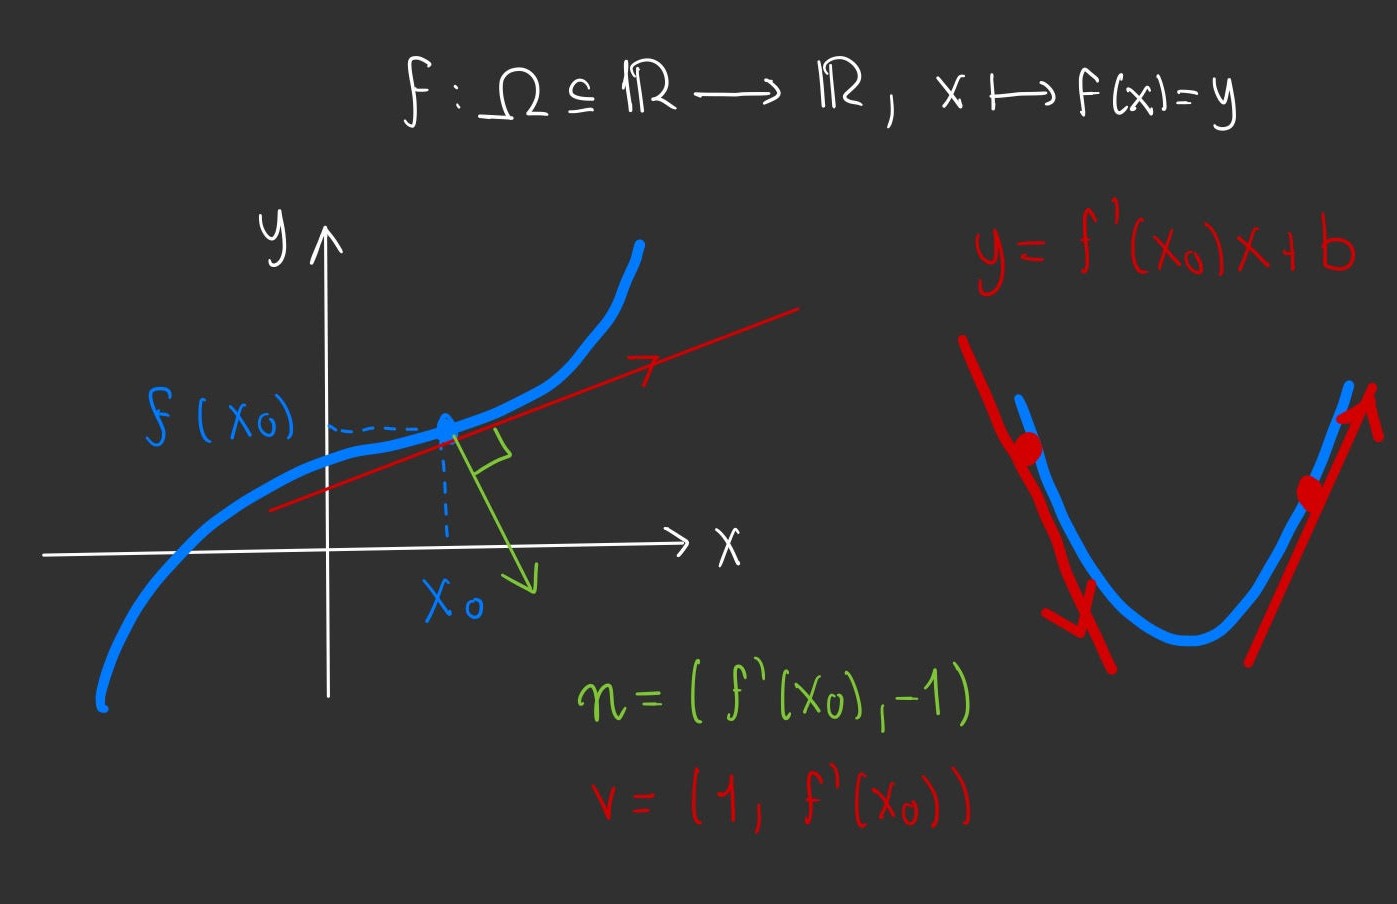 f: Ω ⊆ ℝ ⟶ ℝ, x ⟼ f(x)=y
y
y = f'(x₀)x + b
f(x₀)
x
x₀
n = (f'(x₀), -1)
v = (1, f'(x₀))